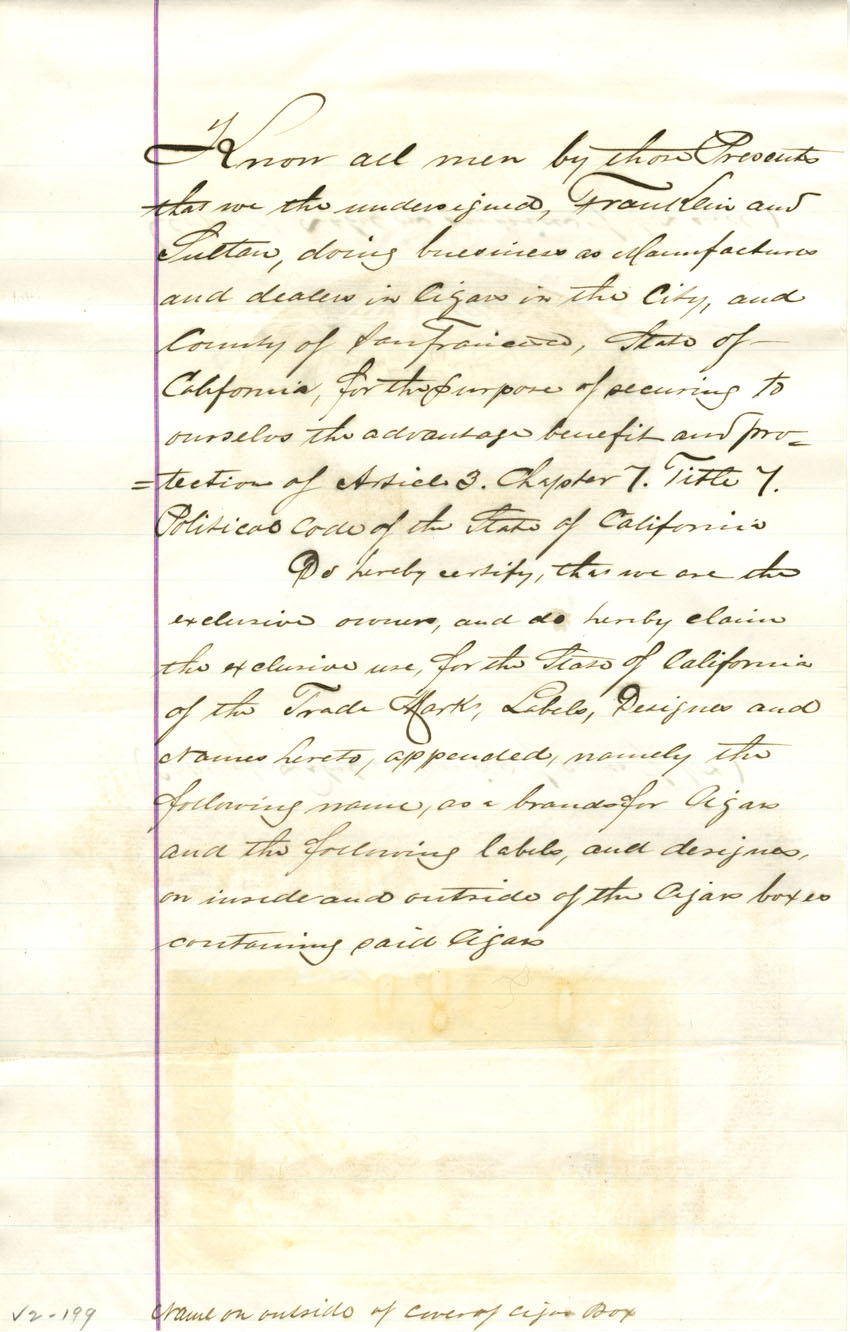 Know all men by these Presents
that we the undersigned, Franklin and
Sultan, doing buesiness as Manufactures
and dealers in Cigars in the City, and
County of San Francisco, State of
California, for the purpose of securing to
ourselvs the advantage benefit and pro-
=tection of Article 3. Chapter 7. Title 7.
Political Code of the State of California
Do hereby certify, that we are the
exclusive owners, and do hereby claim
the exclusive use, for the State of California
of the Trade Marks, Labels, Designes and
Names hereto, appended, namely the
following name, as a brands for Cigars
and the following labels, and designes,
on inside and outside of the Cigars boxes
containing said Cigars
V2-199
Name on outside of cover of Cigar Box